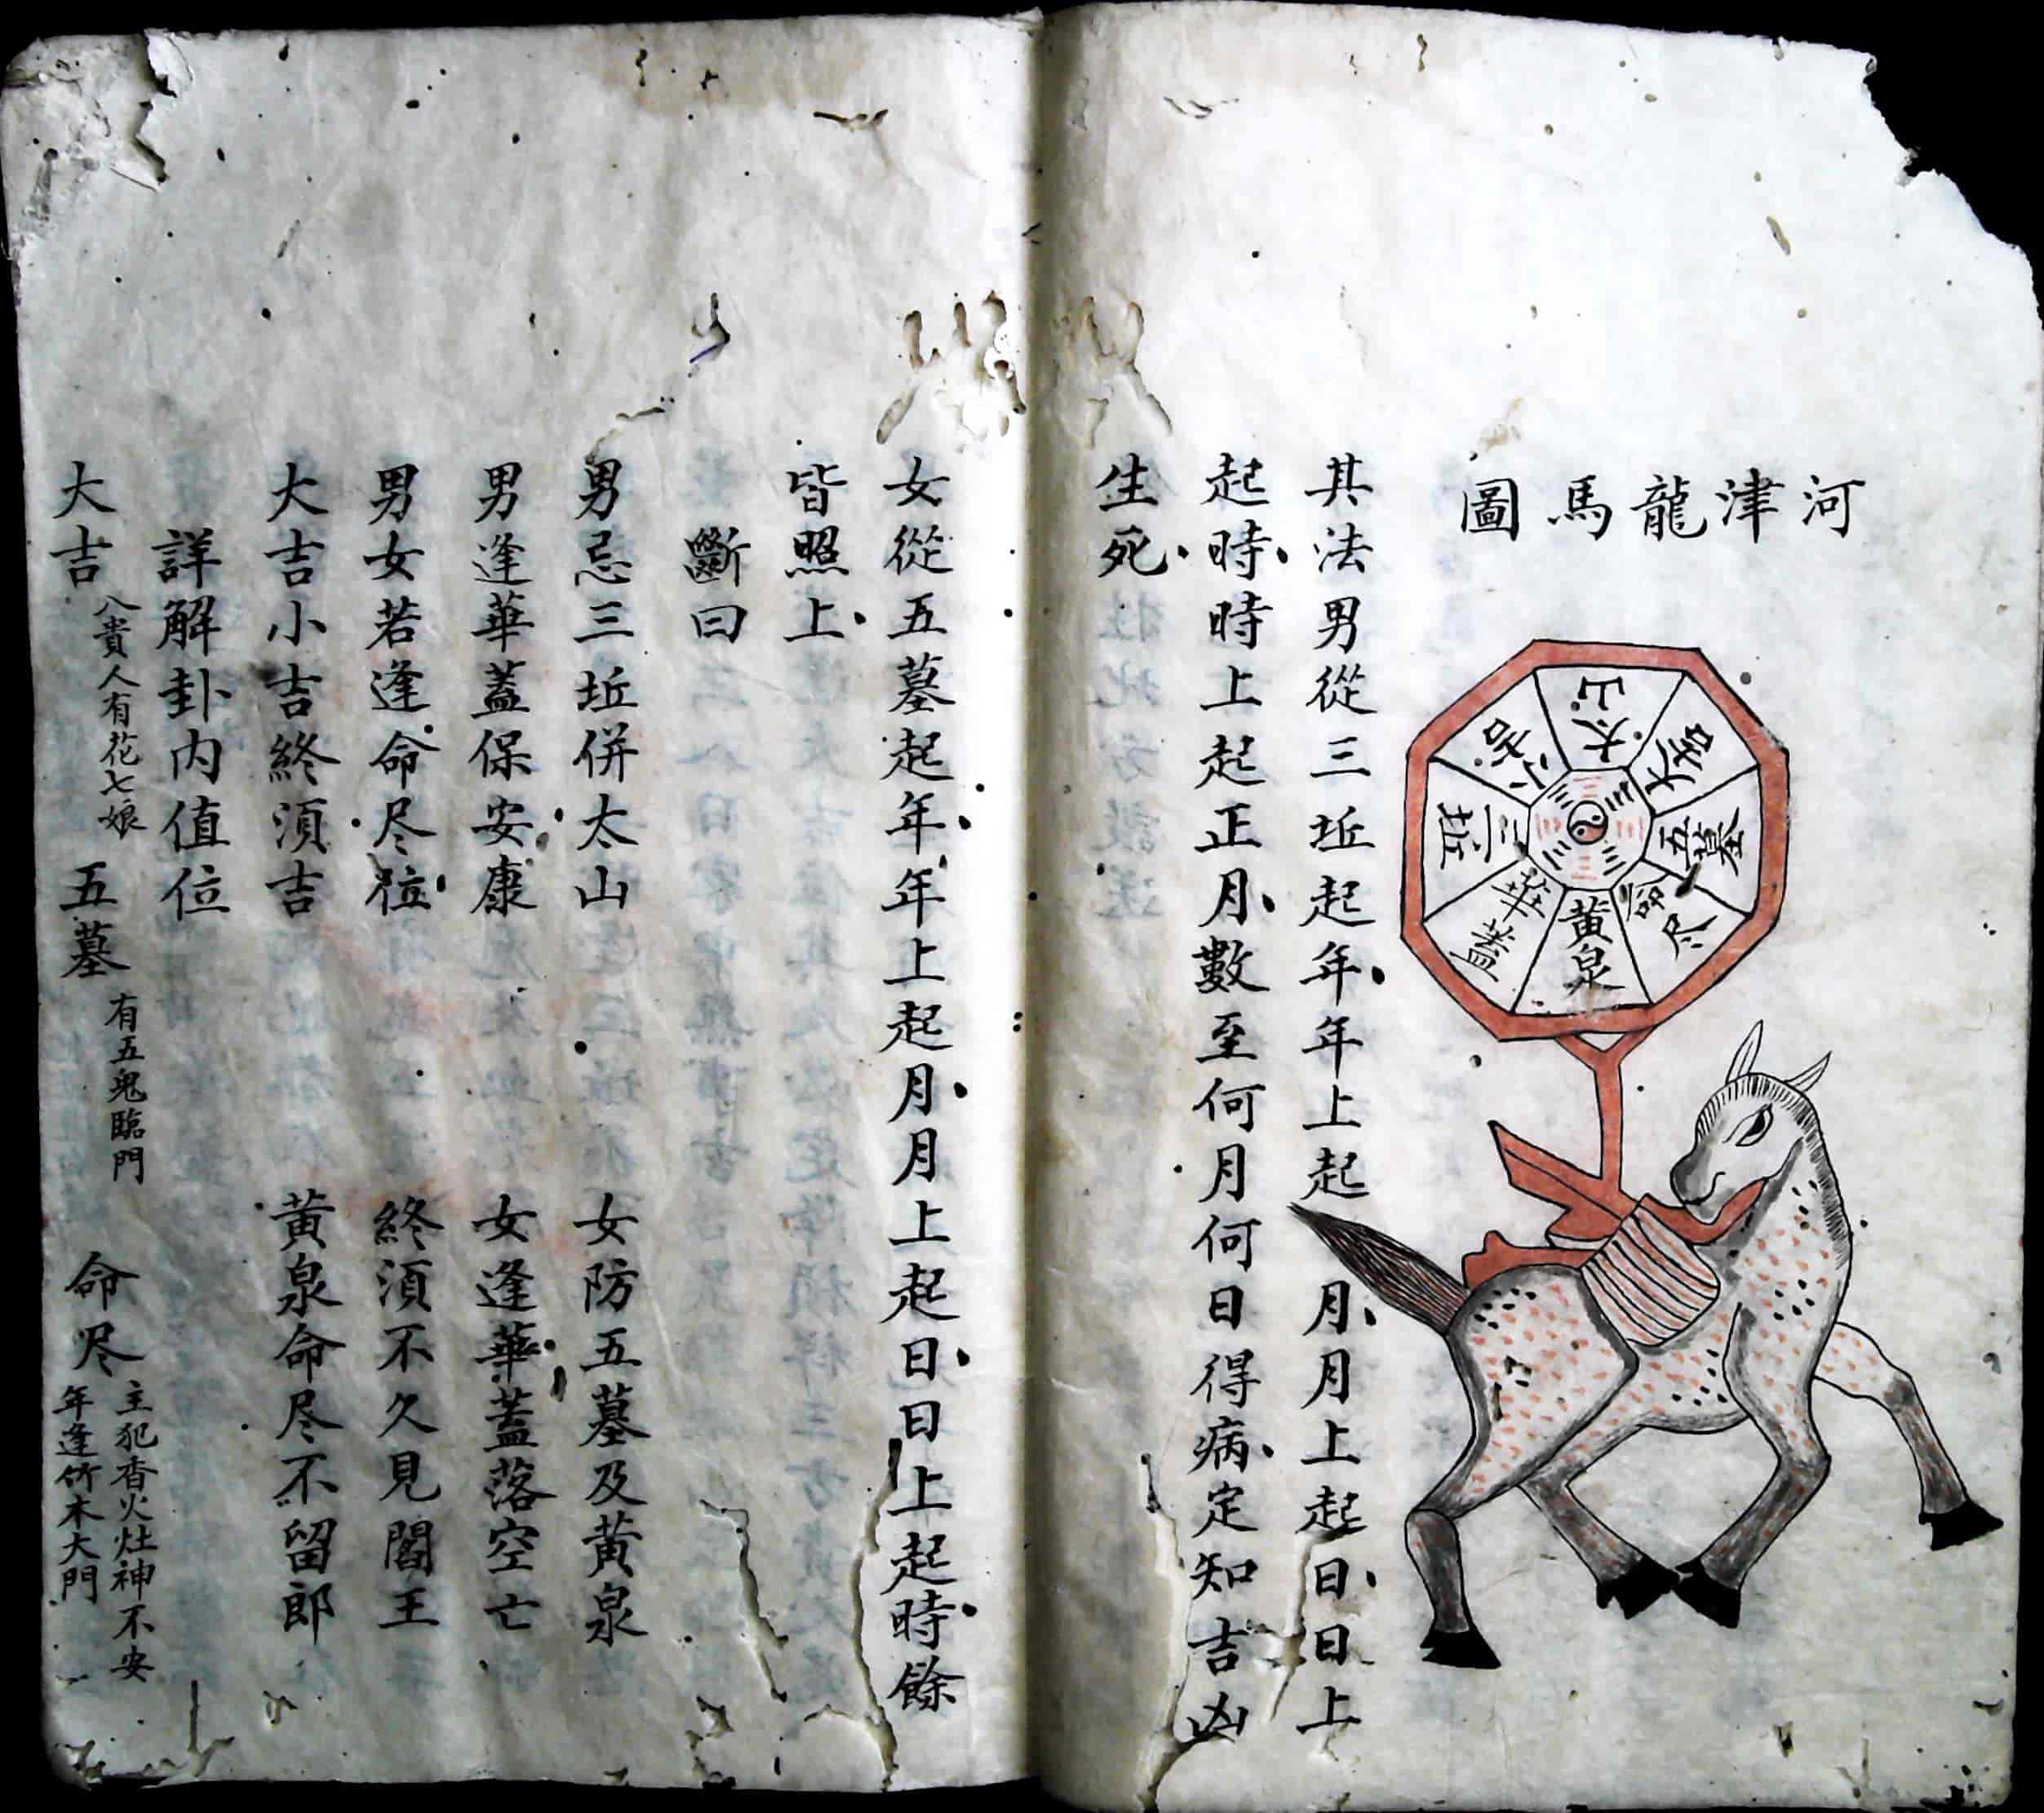 河津龍馬圖
太山
大吉
五墓
命尽
黄泉
華蓋
三坵
小吉
其法男從三坵起年年上起月月上起日日上
起時時上起正月數至何月何日得病定知吉凶
生死
女從五墓起年年上起月月上起日日上起時餘
皆照上
斷曰
男忌三坵併太山 女防五墓及黄泉
男逢華蓋保安康 女逢華蓋落空亡
男女若逢命尽位 終須不久見閻王
大吉小吉終須吉 黄泉命尽不留郎
詳解卦内值位
大吉 八貴人有花七娘 五墓 有五鬼臨門 命尽 主犯香火灶神不安年逢竹木大門